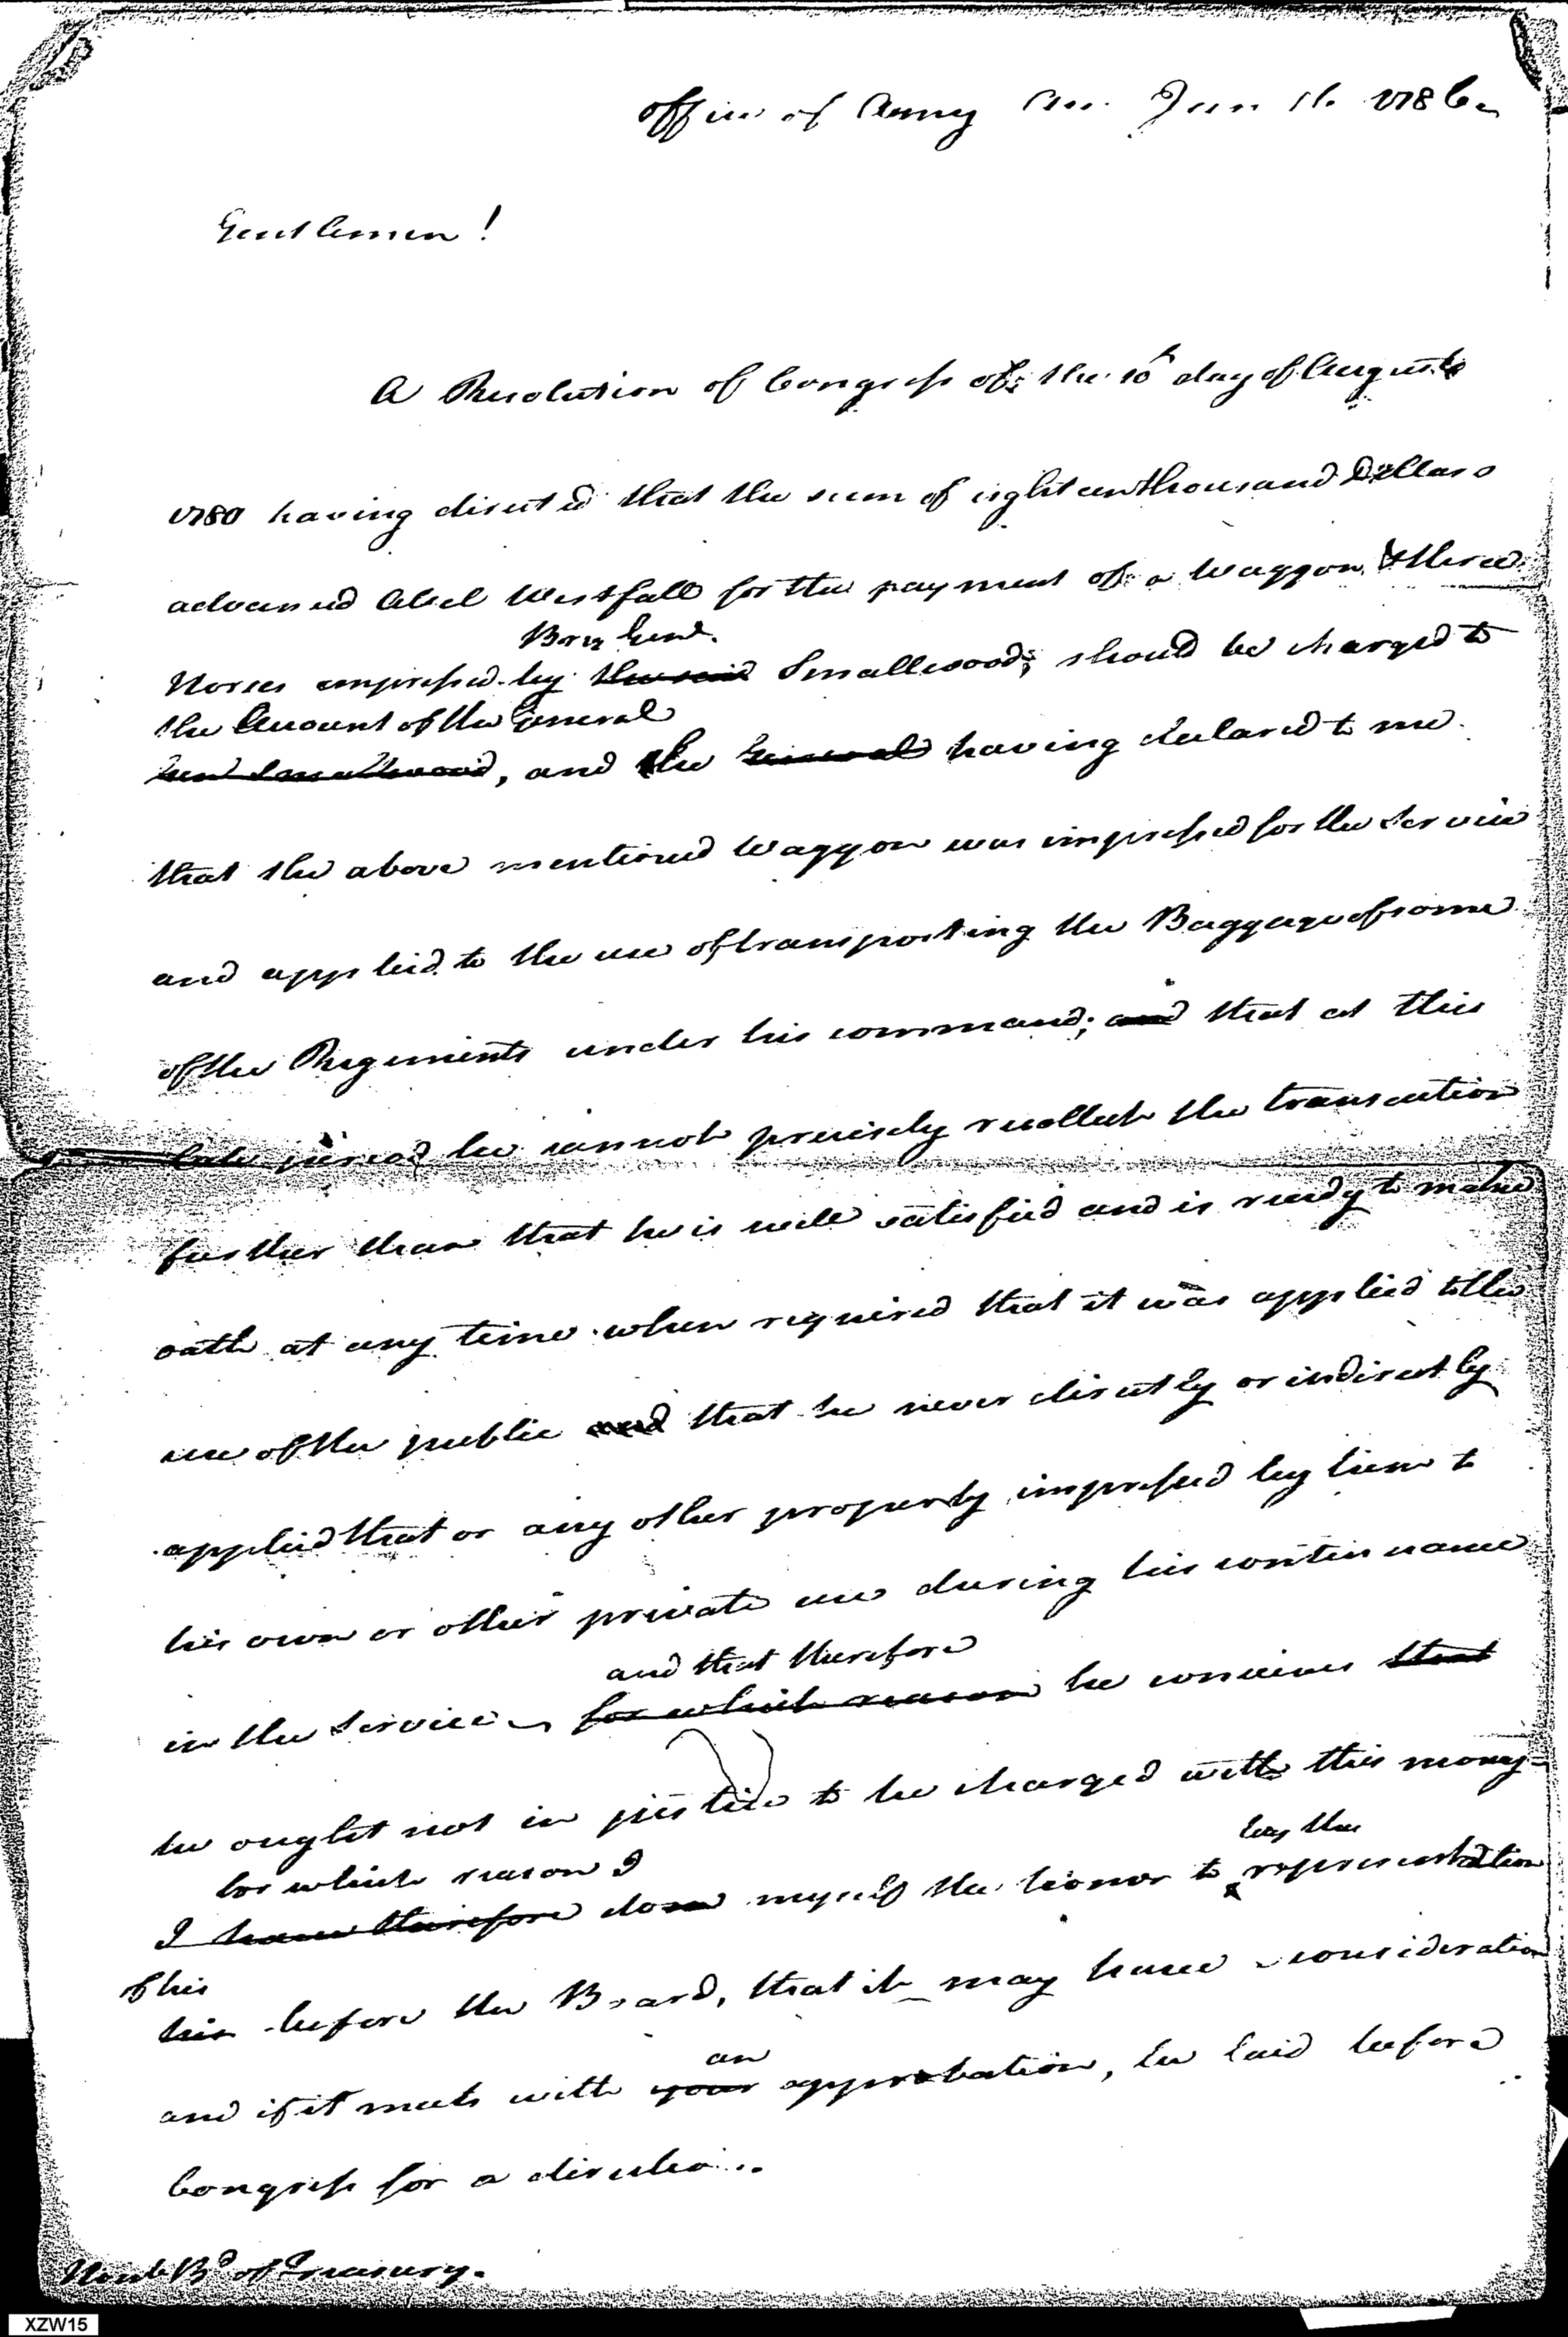 Office of Army Acc. Jan 16. 1786
Gentlemen!
A Resolution of Congress of the 10th day of August
1780 having directed that the sum of eighteen thousand Dollars
advanced Abel Westfall for the payment of a Waggon & three
Brig Genl.
Horses impressed by the said Smallwood; should be charged to
the Account of the General
Genl Smallwood, and he General having declared to me
that the above mentioned Waggon was impressed for the Service
and applied to the use of transporting the Baggage of some
of the Regiments under his command; and that at this
late period he cannot precisely recollect the transaction
further than that he is well satisfied and is ready to make
oath at any time when required that it was applied to the
use of the public and that he never directly or indirectly
applied that or any other property impressed by him to
his own or other private use during his continuance
and that therefore
in the Service for which reason he conceives that
he ought not in justice to be charged with this money
for which reason I
lay the
I have therefore do myself the honor to representation
this
his before the Board, that it may have consideration
an
and if it meets with your approbation, be laid before
Congress for a
Honble Bd of Treasury.
XZW15